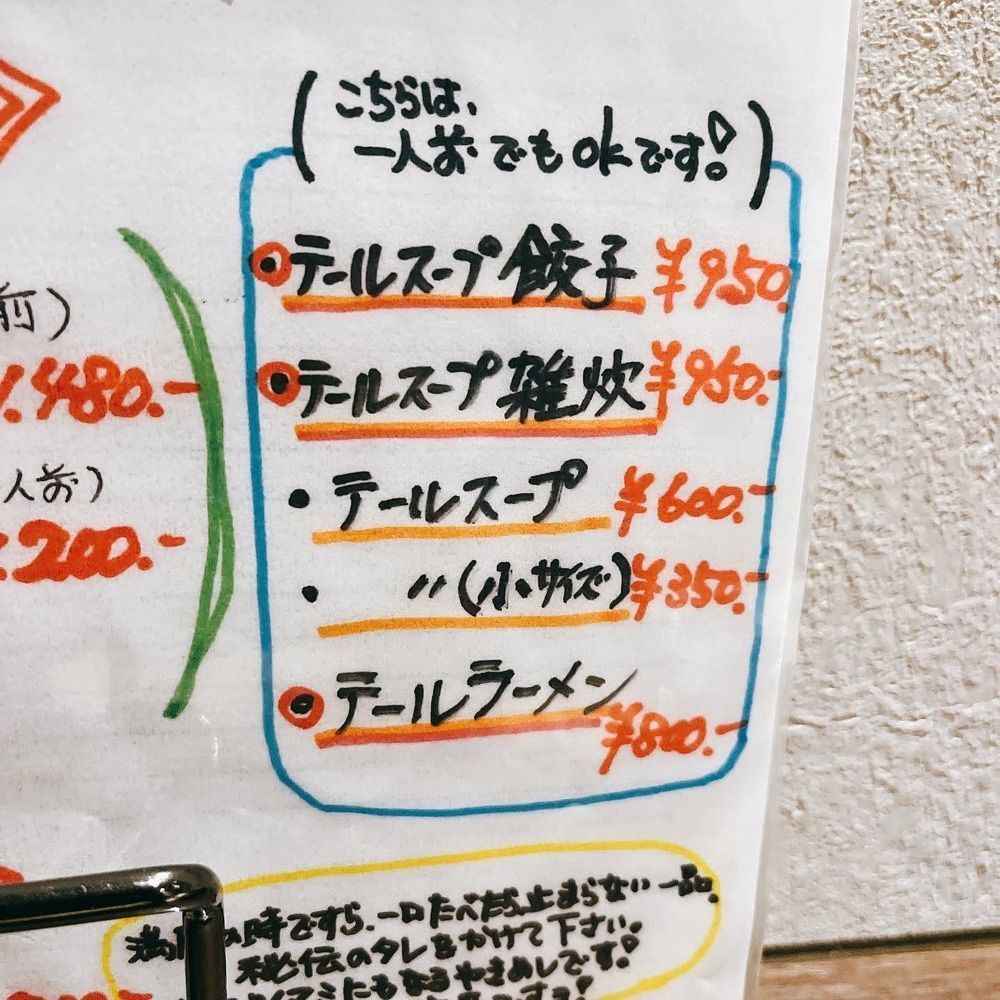 (こちらは、
一人前でもokです!)
テールスープ餃子 ¥950.
テールスープ雑炊 ¥950.-
・テールスープ ¥600.-
・ 〃(小サイズ) ¥350.-
テールラーメン
¥800.-
前)
480.-
人前)
200.-
時ですら、一口たべだら止まらない一品。
秘伝のタレをかけて下さい。
やきめしです!